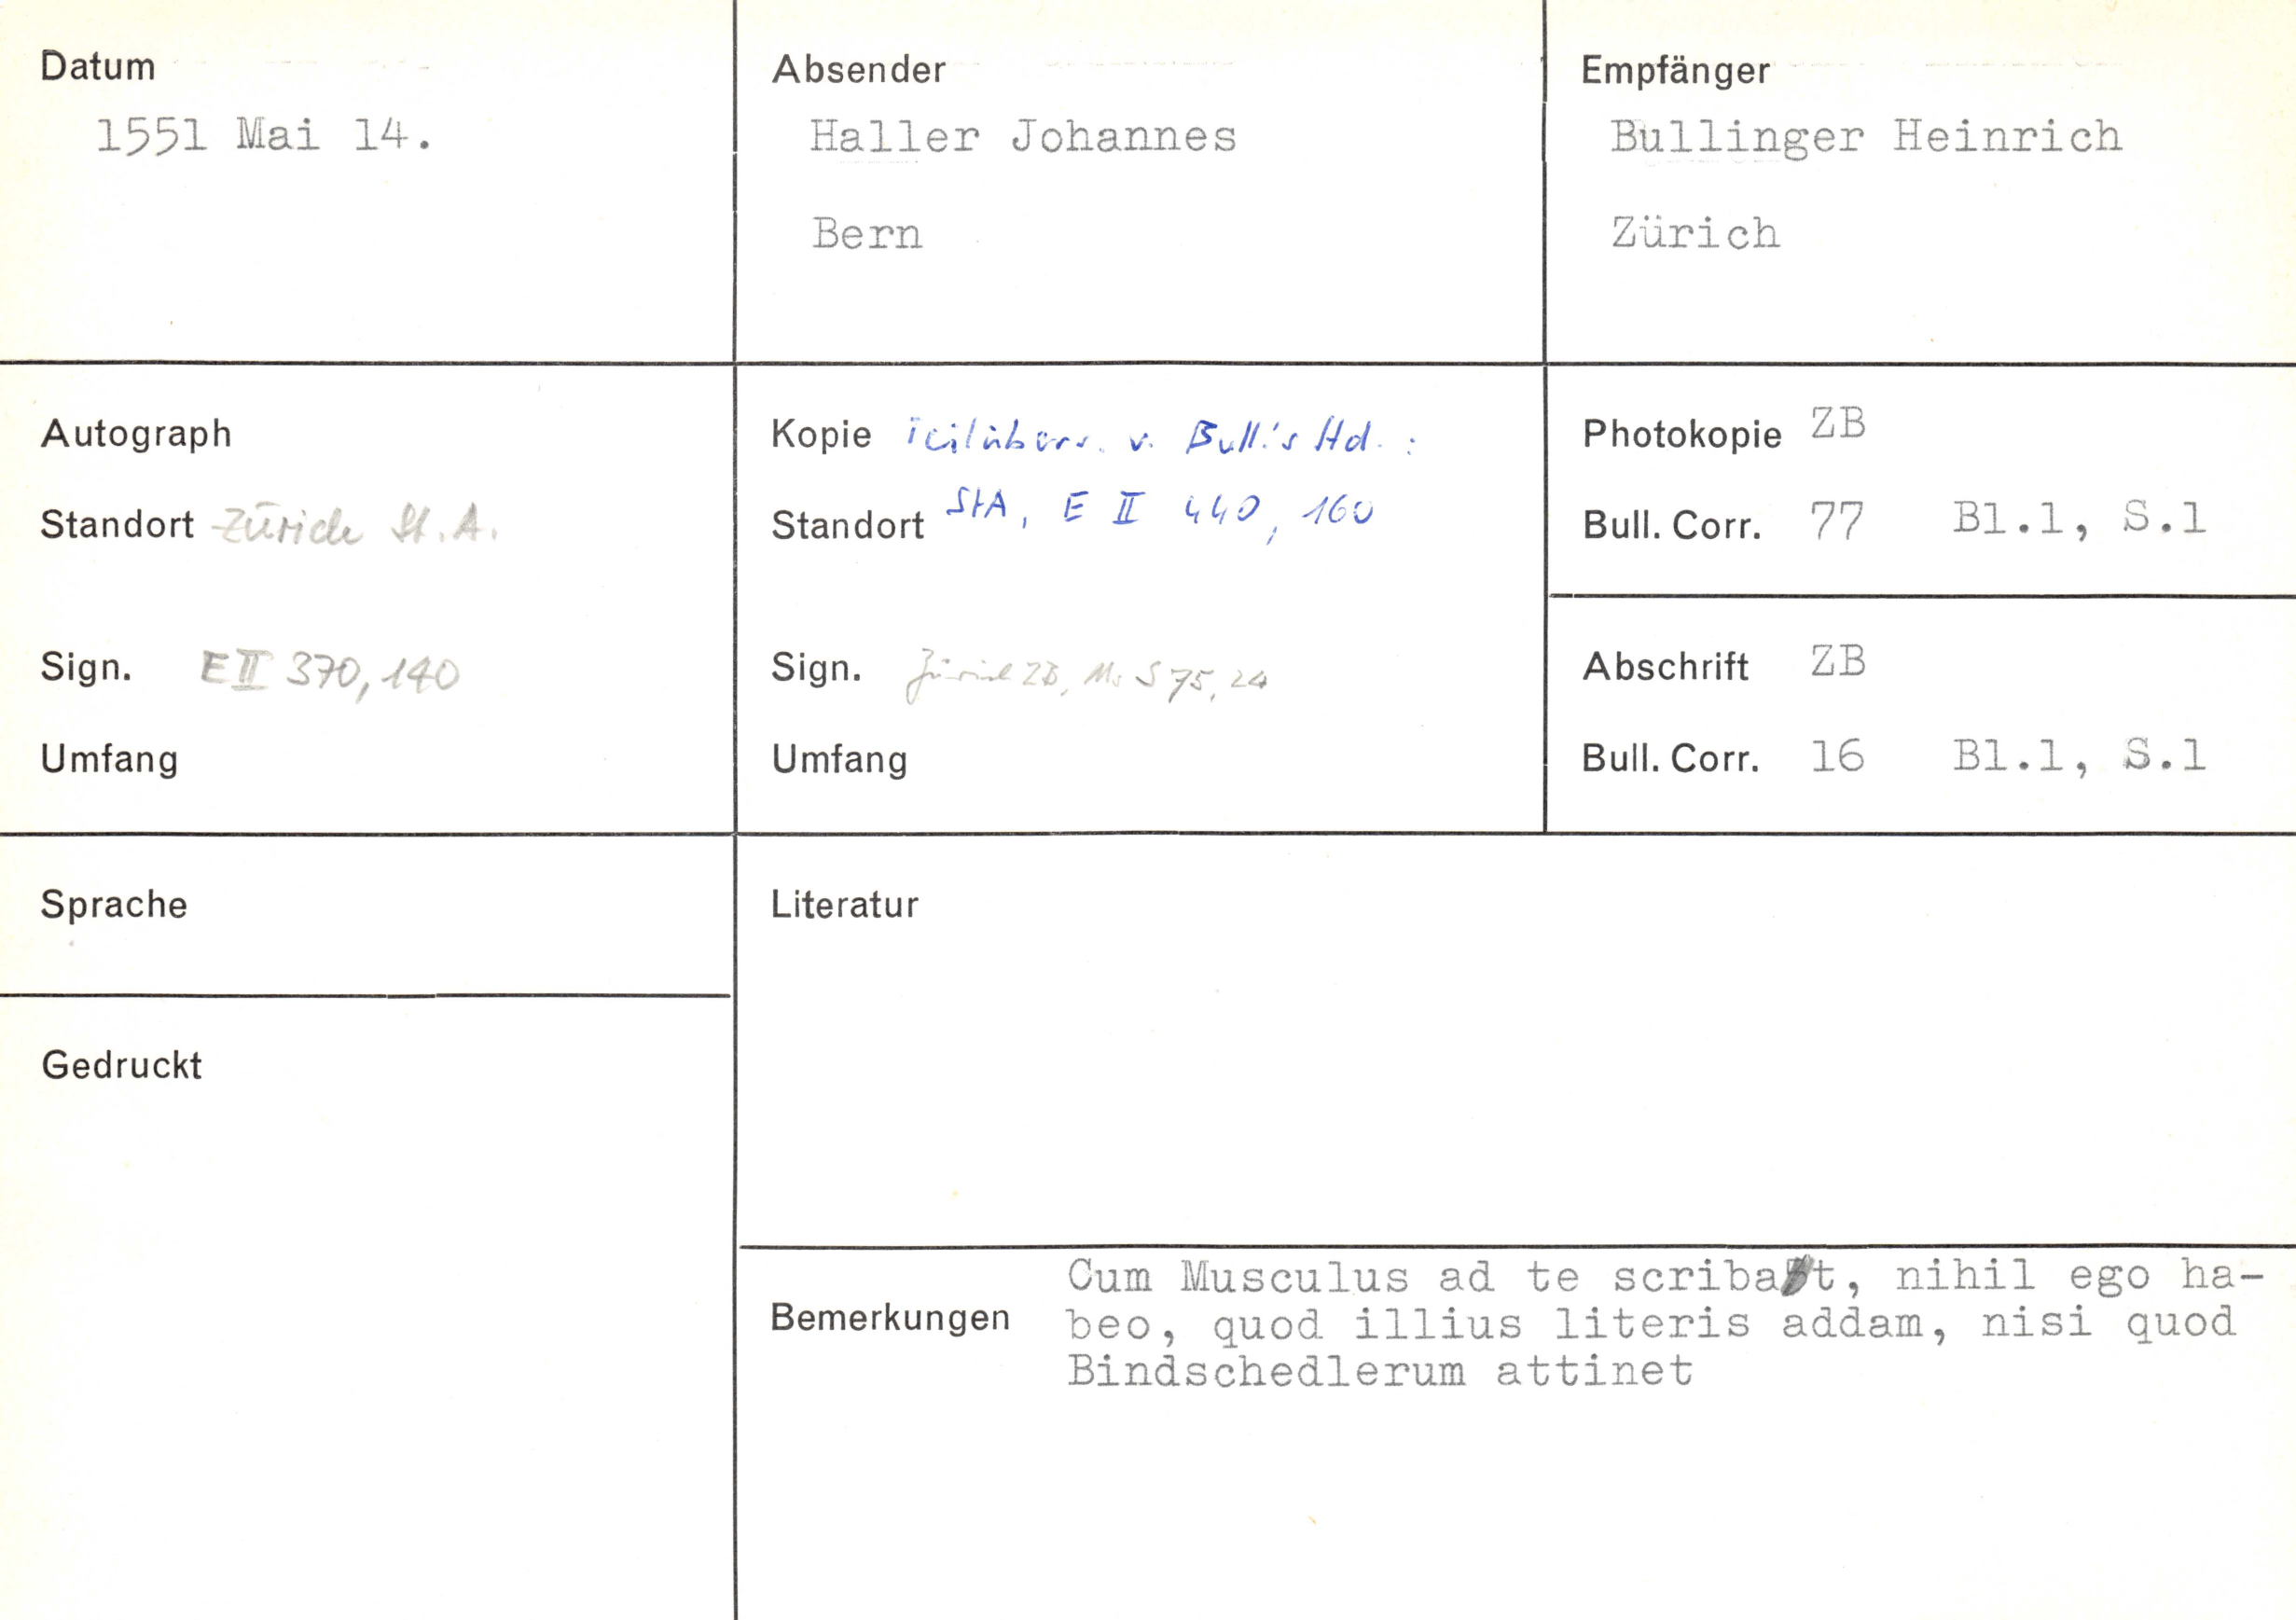 Datum
1551 Mai 14.
Absender
Haller Johannes
Bern
Empfänger
Bullinger Heinrich
Zürich
Autograph
Standort Zürich St.A.
Sign. E II 370, 140
Umfang
Kopie Teilübers. v. Bull.'s Hd. :
Standort StA, E II 440, 160
Sign. Zürich ZB, Ms S 75, 24
Umfang
Photokopie ZB
Bull. Corr. 77 Bl.1, S.1
Abschrift ZB
Bull. Corr. 16 Bl.1, S.1
Sprache
Gedruckt
Literatur
Bemerkungen
Cum Musculus ad te scribat, nihil ego ha-
beo, quod illius literis addam, nisi quod
Bindschedlerum attinet